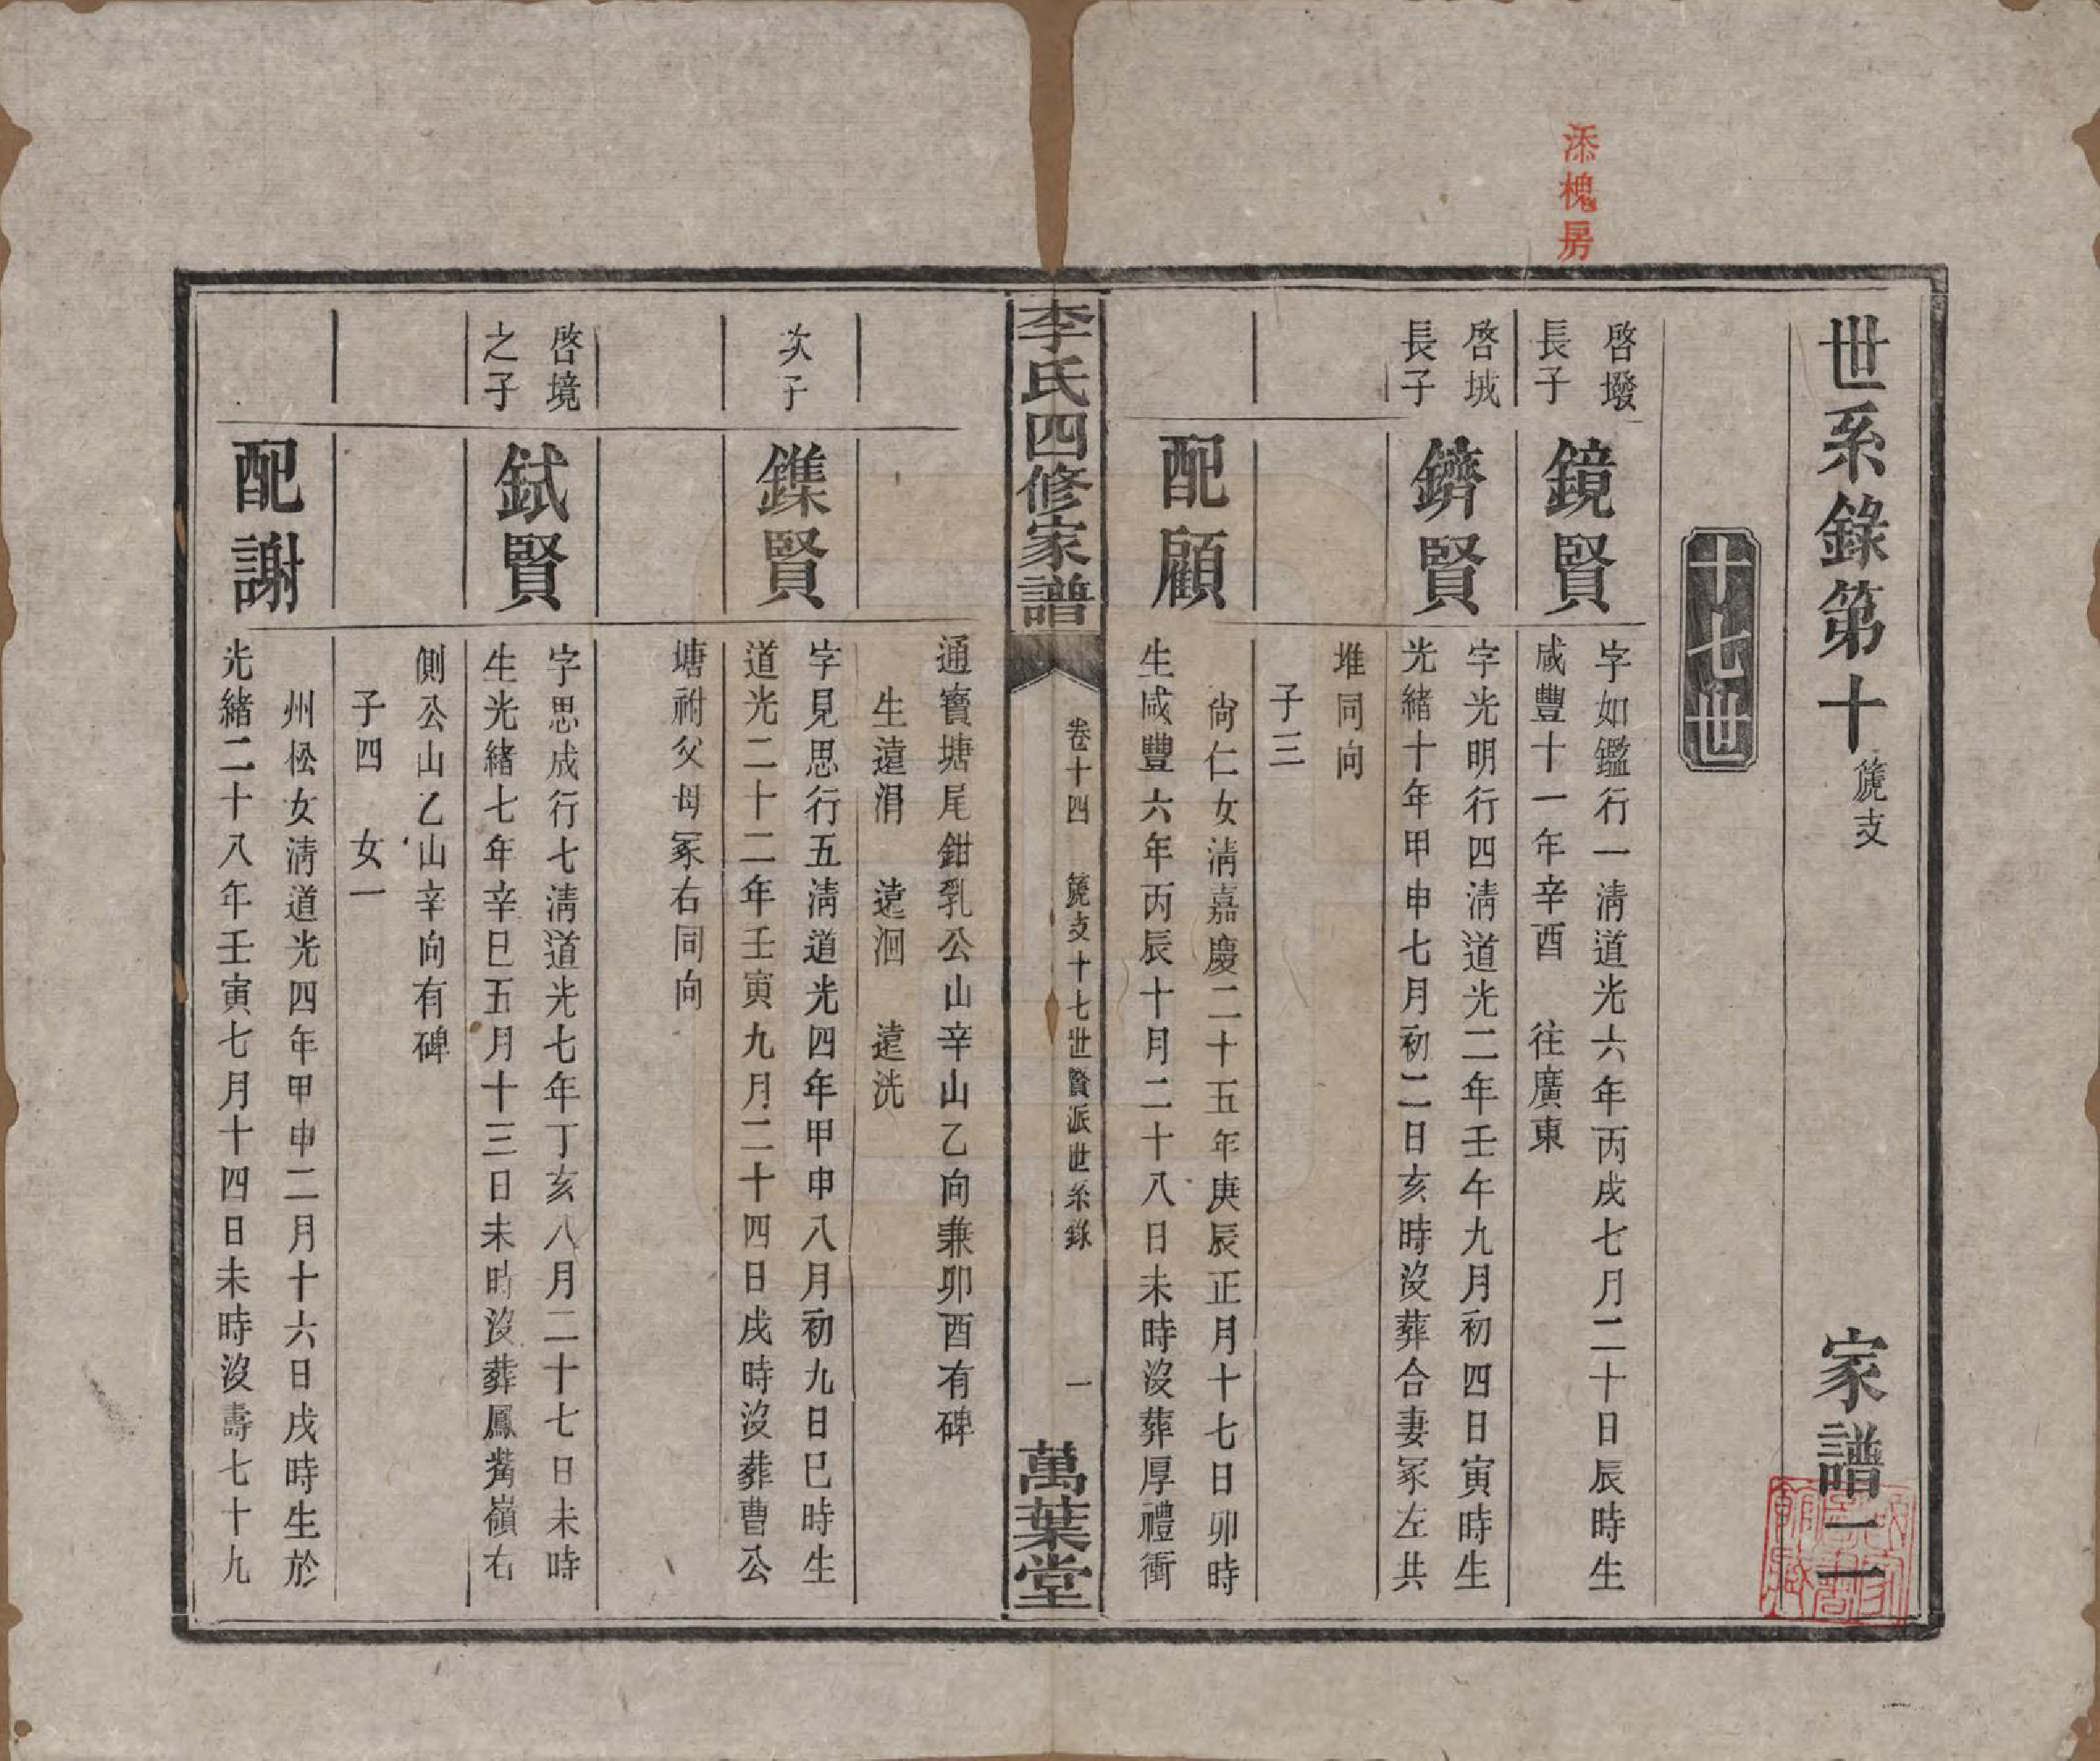 添槐房
世系錄第十 箎支 家譜二二
十七世
啓墢長子
鏡賢
字如鑑行一淸道光六年丙戌七月二十日辰時生
咸豐十一年辛酉 往廣東
啓城長子
鑇賢
字光明行四淸道光二年壬午九月初四日寅時生
光緒十年甲申七月初二日亥時沒葬合妻冢左共
堆同向
子三
配顧
尙仁女淸嘉慶二十五年庚辰正月十七日卯時
生咸豐六年丙辰十月二十八日未時沒葬厚禮衝
李氏四修家譜
卷十四 箎支十七世賢派世系錄
一
萬葉堂
通寶塘尾鉗乳公山辛山乙向兼卯酉有碑
生遠涓 遠洄 遠洸
次子
鏶賢
字見思行五淸道光四年甲申八月初九日巳時生
道光二十二年壬寅九月二十四日戌時沒葬曹公
塘祔父母冢右同向
啓境之子
鉽賢
字思成行七淸道光七年丁亥八月二十七日未時
生光緒七年辛巳五月十三日未時沒葬鳳觜嶺右
側公山乙山辛向有碑
子四 女一
配謝
州松女淸道光四年甲申二月十六日戌時生於
光緒二十八年壬寅七月十四日未時沒壽七十九